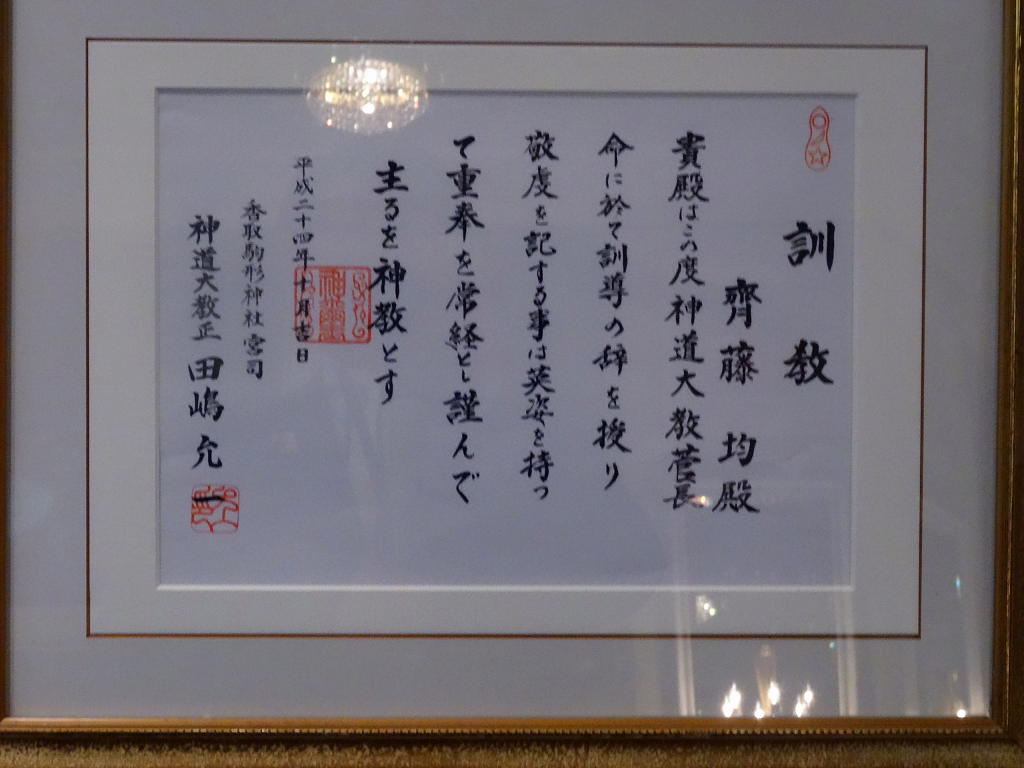 訓教
齊藤 均殿
貴殿はこの度神道大教菅長
命に於て訓導の辞を授り
敬虔を記する事は英姿を持っ
て重奉を常経とし謹んで
主るを神教とす
平成二十四年十月吉日
香取駒形神社 宮司
神道大教正 田嶋允